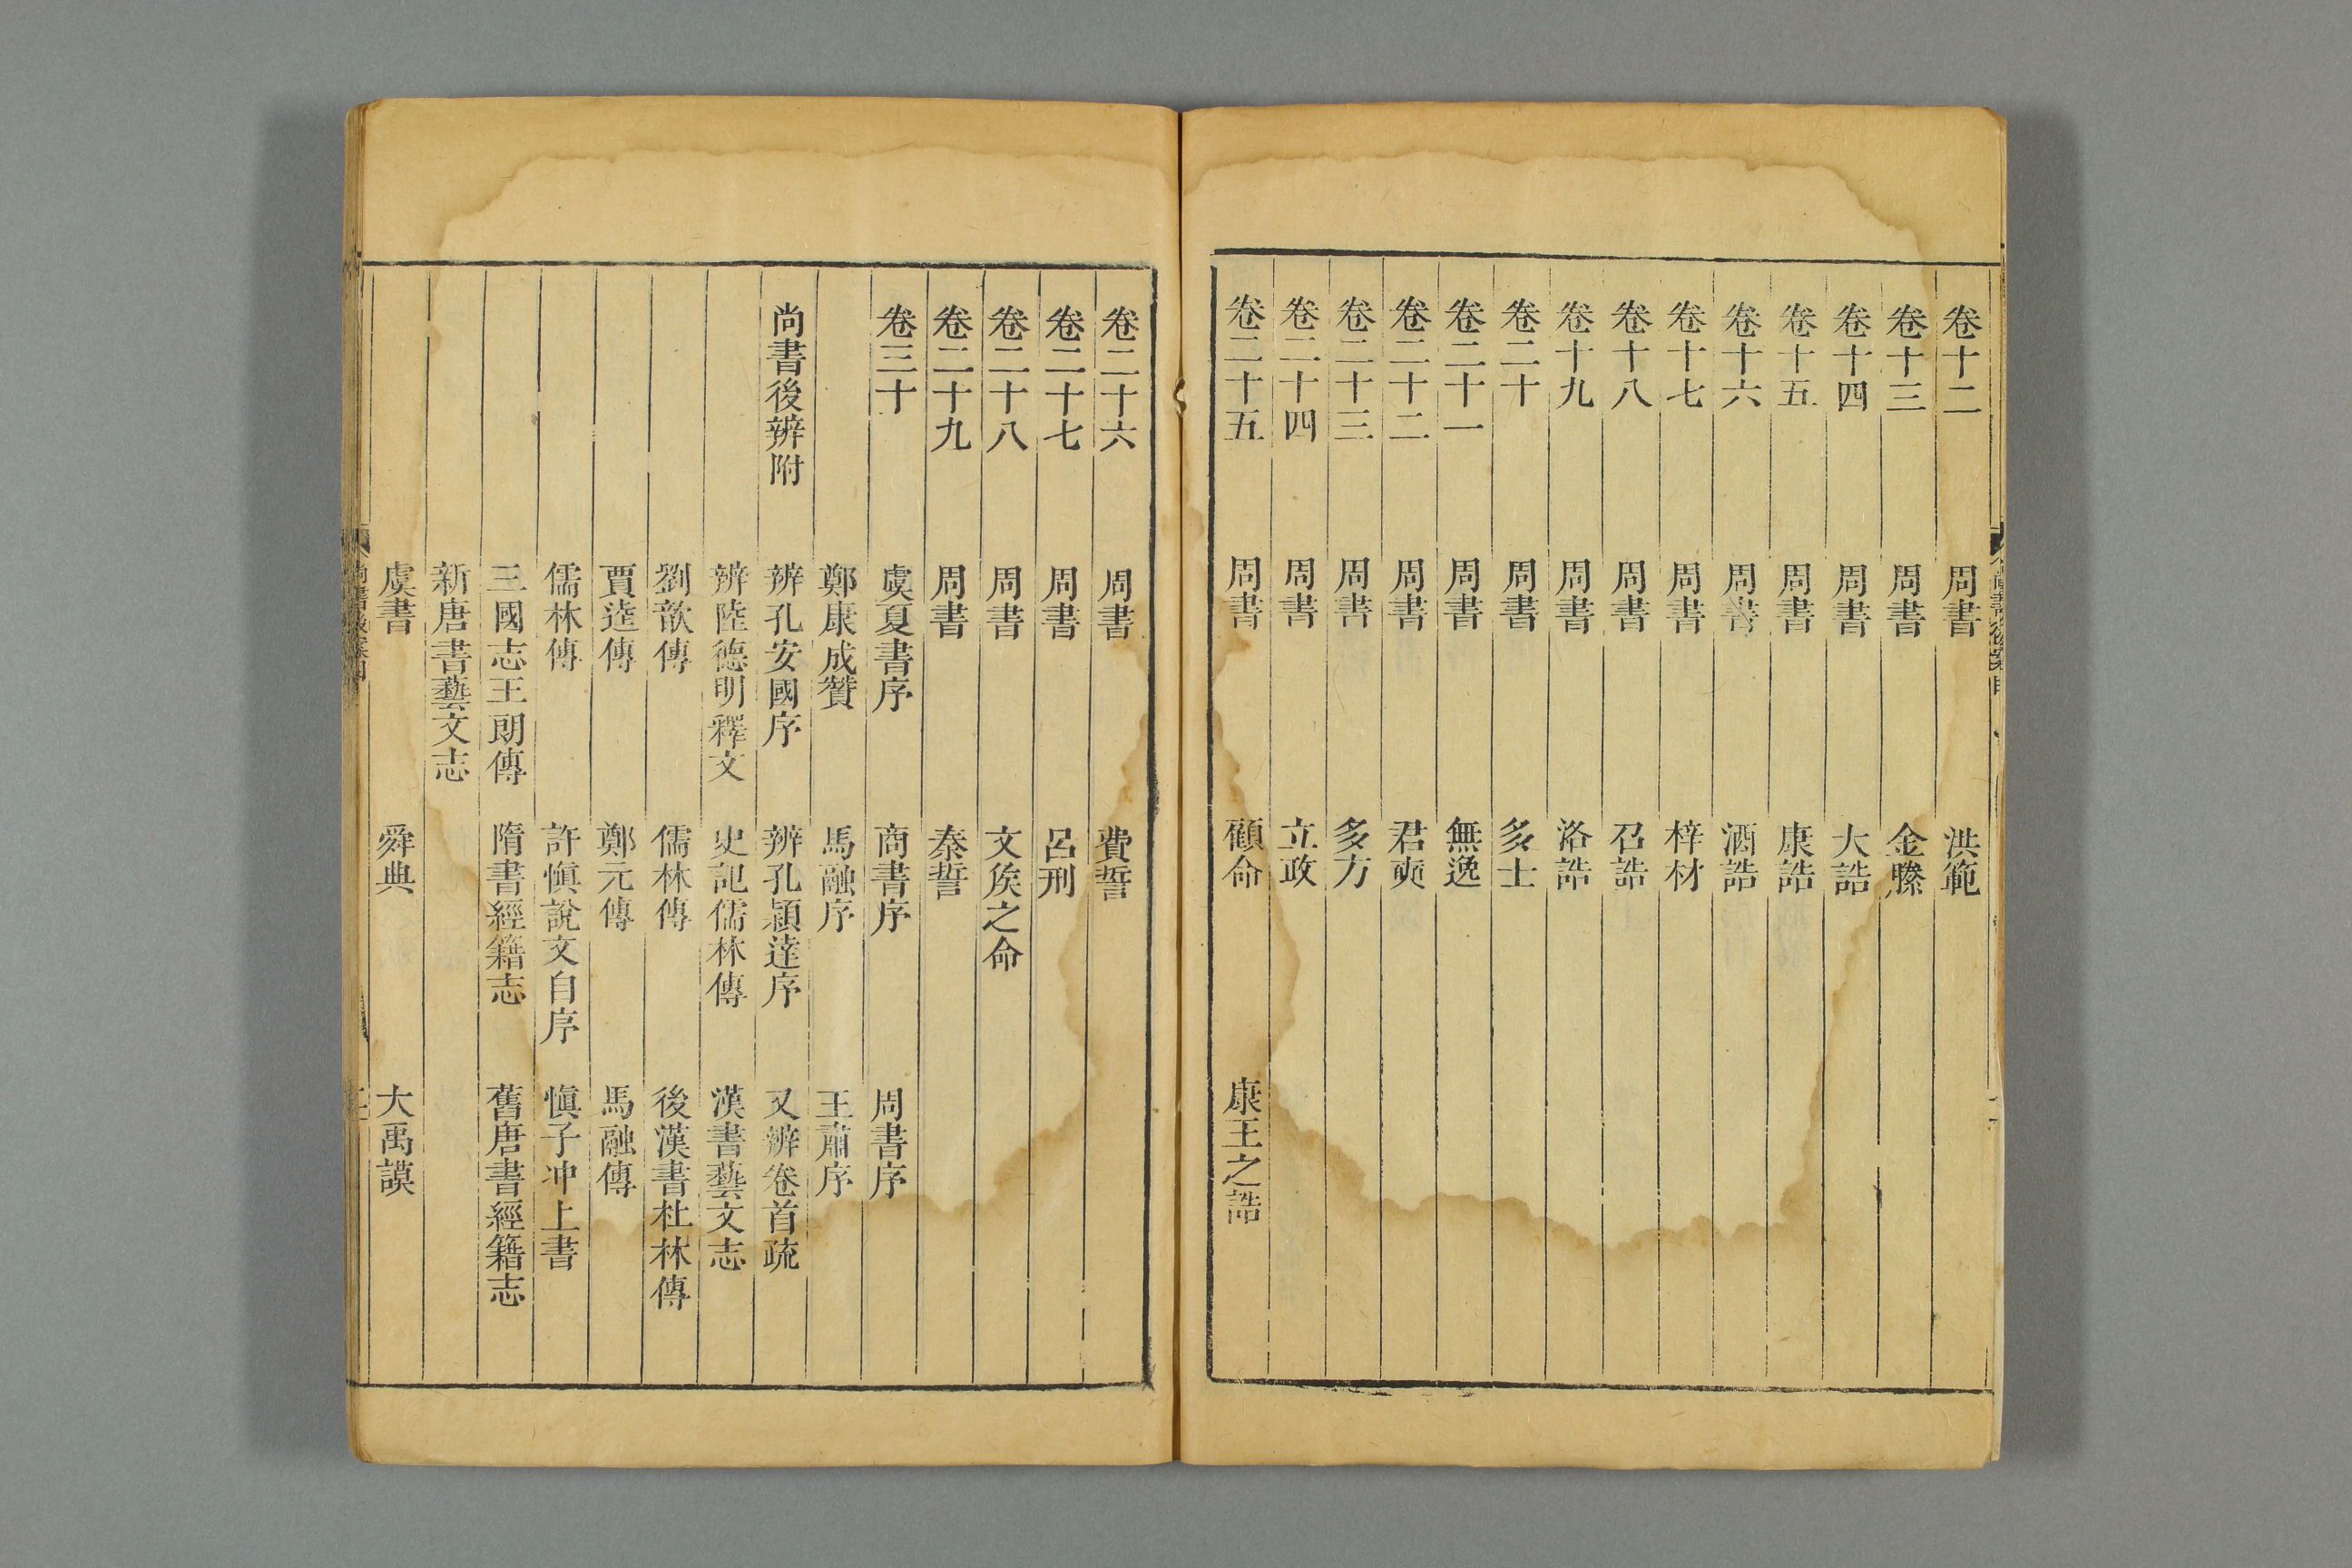 卷十二 周書 洪範
卷十三 周書 金縢
卷十四 周書 大誥
卷十五 周書 康誥
卷十六 周書 酒誥
卷十七 周書 梓材
卷十八 周書 召誥
卷十九 周書 洛誥
卷二十 周書 多士
卷二十一 周書 無逸
卷二十二 周書 君奭
卷二十三 周書 多方
卷二十四 周書 立政
卷二十五 周書 顧命 康王之誥
卷二十六 周書 費誓
卷二十七 周書 呂刑
卷二十八 周書 文矦之命
卷二十九 周書 秦誓
卷三十 虞夏書序 商書序 周書序
鄭康成贊 馬融序 王肅序
尚書後辨附 辨孔安國序 辨孔穎達序 又辨卷首疏
辨陸德明釋文 史記儒林傳 漢書藝文志
劉歆傳 儒林傳 後漢書杜林傳
賈逵傳 鄭元傳 馬融傳
儒林傳 許愼說文自序 愼子冲上書
三國志王朗傳 隋書經籍志 舊唐書經籍志
新唐書藝文志
虞書 舜典 大禹謨